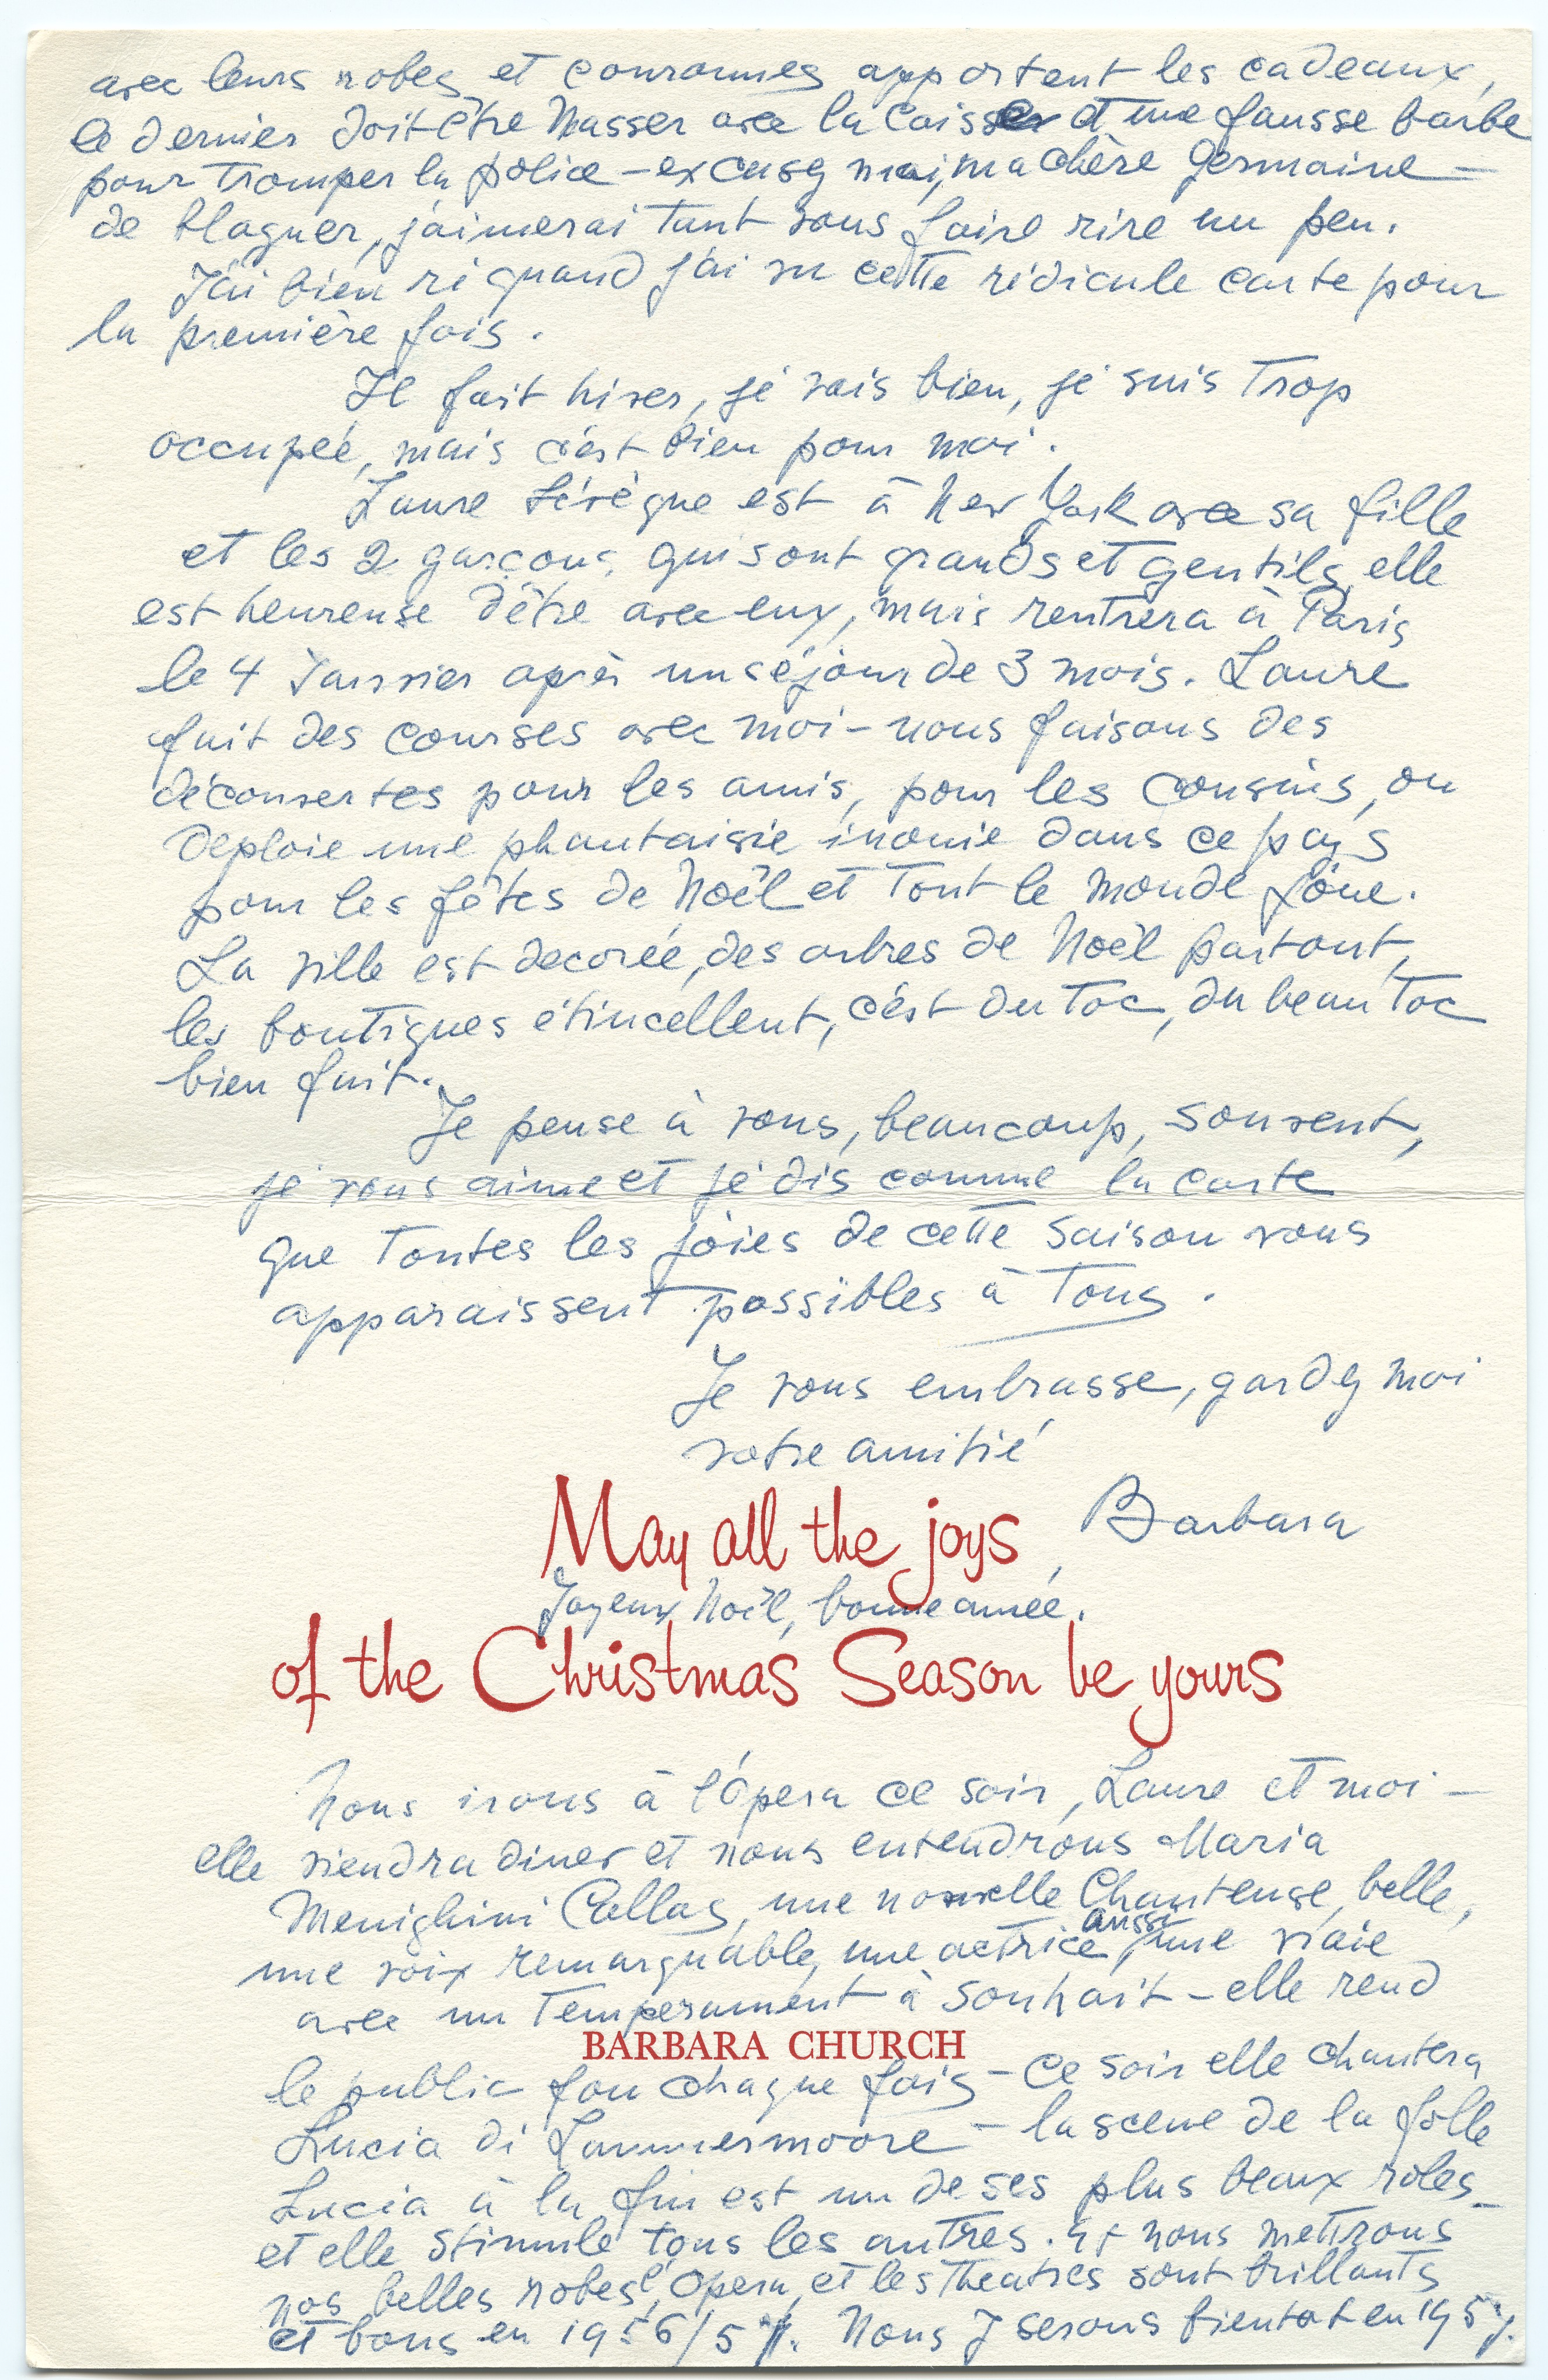 avec leurs robes et couronnes apportent les cadeaux,
le dernier doit être Nasser avec la caisse et une fausse barbe
pour tromper la police – excusez moi, ma chère Germaine –
de blaguer, j'aimerai tant vous faire rire un peu.
J'ai bien ri quand j'ai vu cette ridicule carte pour
la première fois.
Il fait hiver, je vais bien, je suis trop
occupée, mais c'est bien pour moi.
Laure Lévêque est à New York avec sa fille
et les 2 garçons, qui sont grands et gentils, elle
est heureuse d'être avec eux, mais rentrera à Paris
le 4 Janvier après un séjour de 3 mois. Laure
fait des courses avec moi – nous faisons des
découvertes pour les amis, pour les cousins, on
deploie une phantaisie inouie dans ce pays
pour les fêtes de Noël et tout le monde joue.
La ville est decorée, des arbres de Noël partout,
les boutiques étincellent, c'est du toc, du beau toc
bien fait.
Je pense à vous, beaucoup, souvent,
je vous aime et je dis comme la carte
que toutes les joies de cette saison vous
apparaissent possibles à tous.
Je vous embrasse, gardez moi
votre amitié
Barbara
May all the joys
Joyeux Noël, bonne année.
of the Christmas Season be yours
Nous irons à l'Opera ce soir, Laure et moi –
elle viendra diner et nous entendrons Maria
Menighini Callas, une nouvelle Chanteuse, belle,
une voix remarquable, une actrice aussi, une vraie
avec un temperament à souhait – elle rend
BARBARA CHURCH
le public fou chaque fois – Ce soir elle chantera
Lucia di Lammermoore – la scene de la folle
Lucia à la fin est un de ses plus beaux rôles –
et elle stimule tous les autres. Et nous mettrons
nos belles robes, l'Opera, et les Theatres sont brillants
et bons en 1956/57. Nous y serons bientot en 1957.